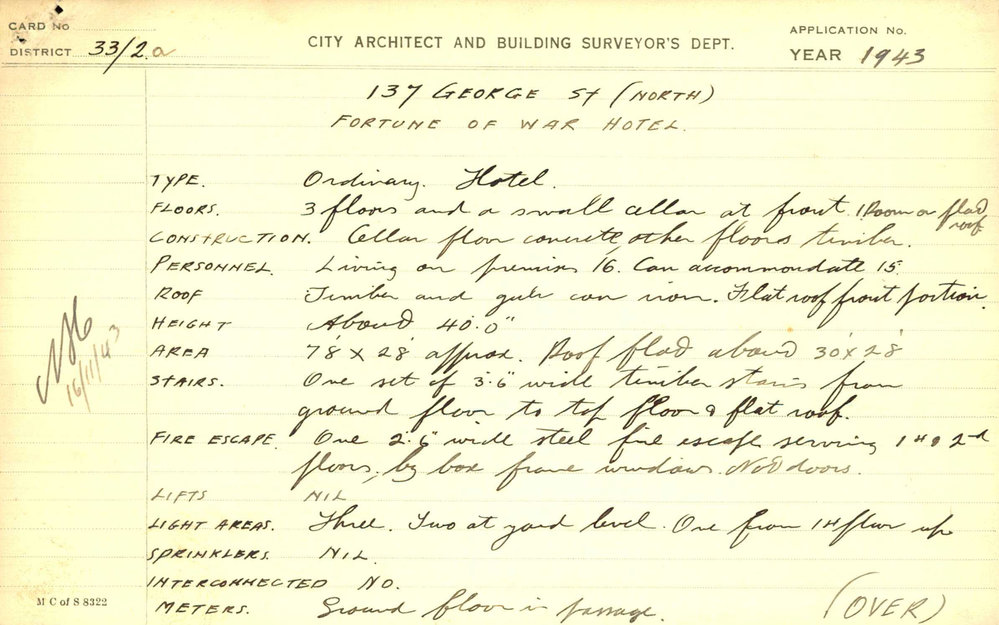 CARD No
DISTRICT 33/2a
CITY ARCHITECT AND BUILDING SURVEYOR'S DEPT.
APPLICATION No.
YEAR 1943
137 GEORGE St (NORTH)
FORTUNE OF WAR HOTEL.
TYPE. Ordinary. Hotel.
FLOORS. 3 floors and a small cellar at front. 1 Room on flat roof
CONSTRUCTION. Cellar floor concrete, other floors timber.
PERSONNEL. Living on premises 16. Can accommondate 15.
ROOF Timber and galv corr iron. Flat roof front portion.
HEIGHT About 40'.0"
AREA 78' x 28' approx. Roof flat about 30' x 28'
STAIRS. One set of 3'.6" wide timber stairs from
ground floor to top floor & flat roof.
FIRE ESCAPE. One 2'.6" wide steel fire escape serving 1st & 2nd
floors, by box frame windows. Not doors.
LIFTS NIL
LIGHT AREAS. Three. Two at yard level. One from 1st floor up
SPRINKLERS. NIL.
INTERCONNECTED NO.
METERS. Ground floor in passage.
(OVER)
16/11/43
M C of S 8322